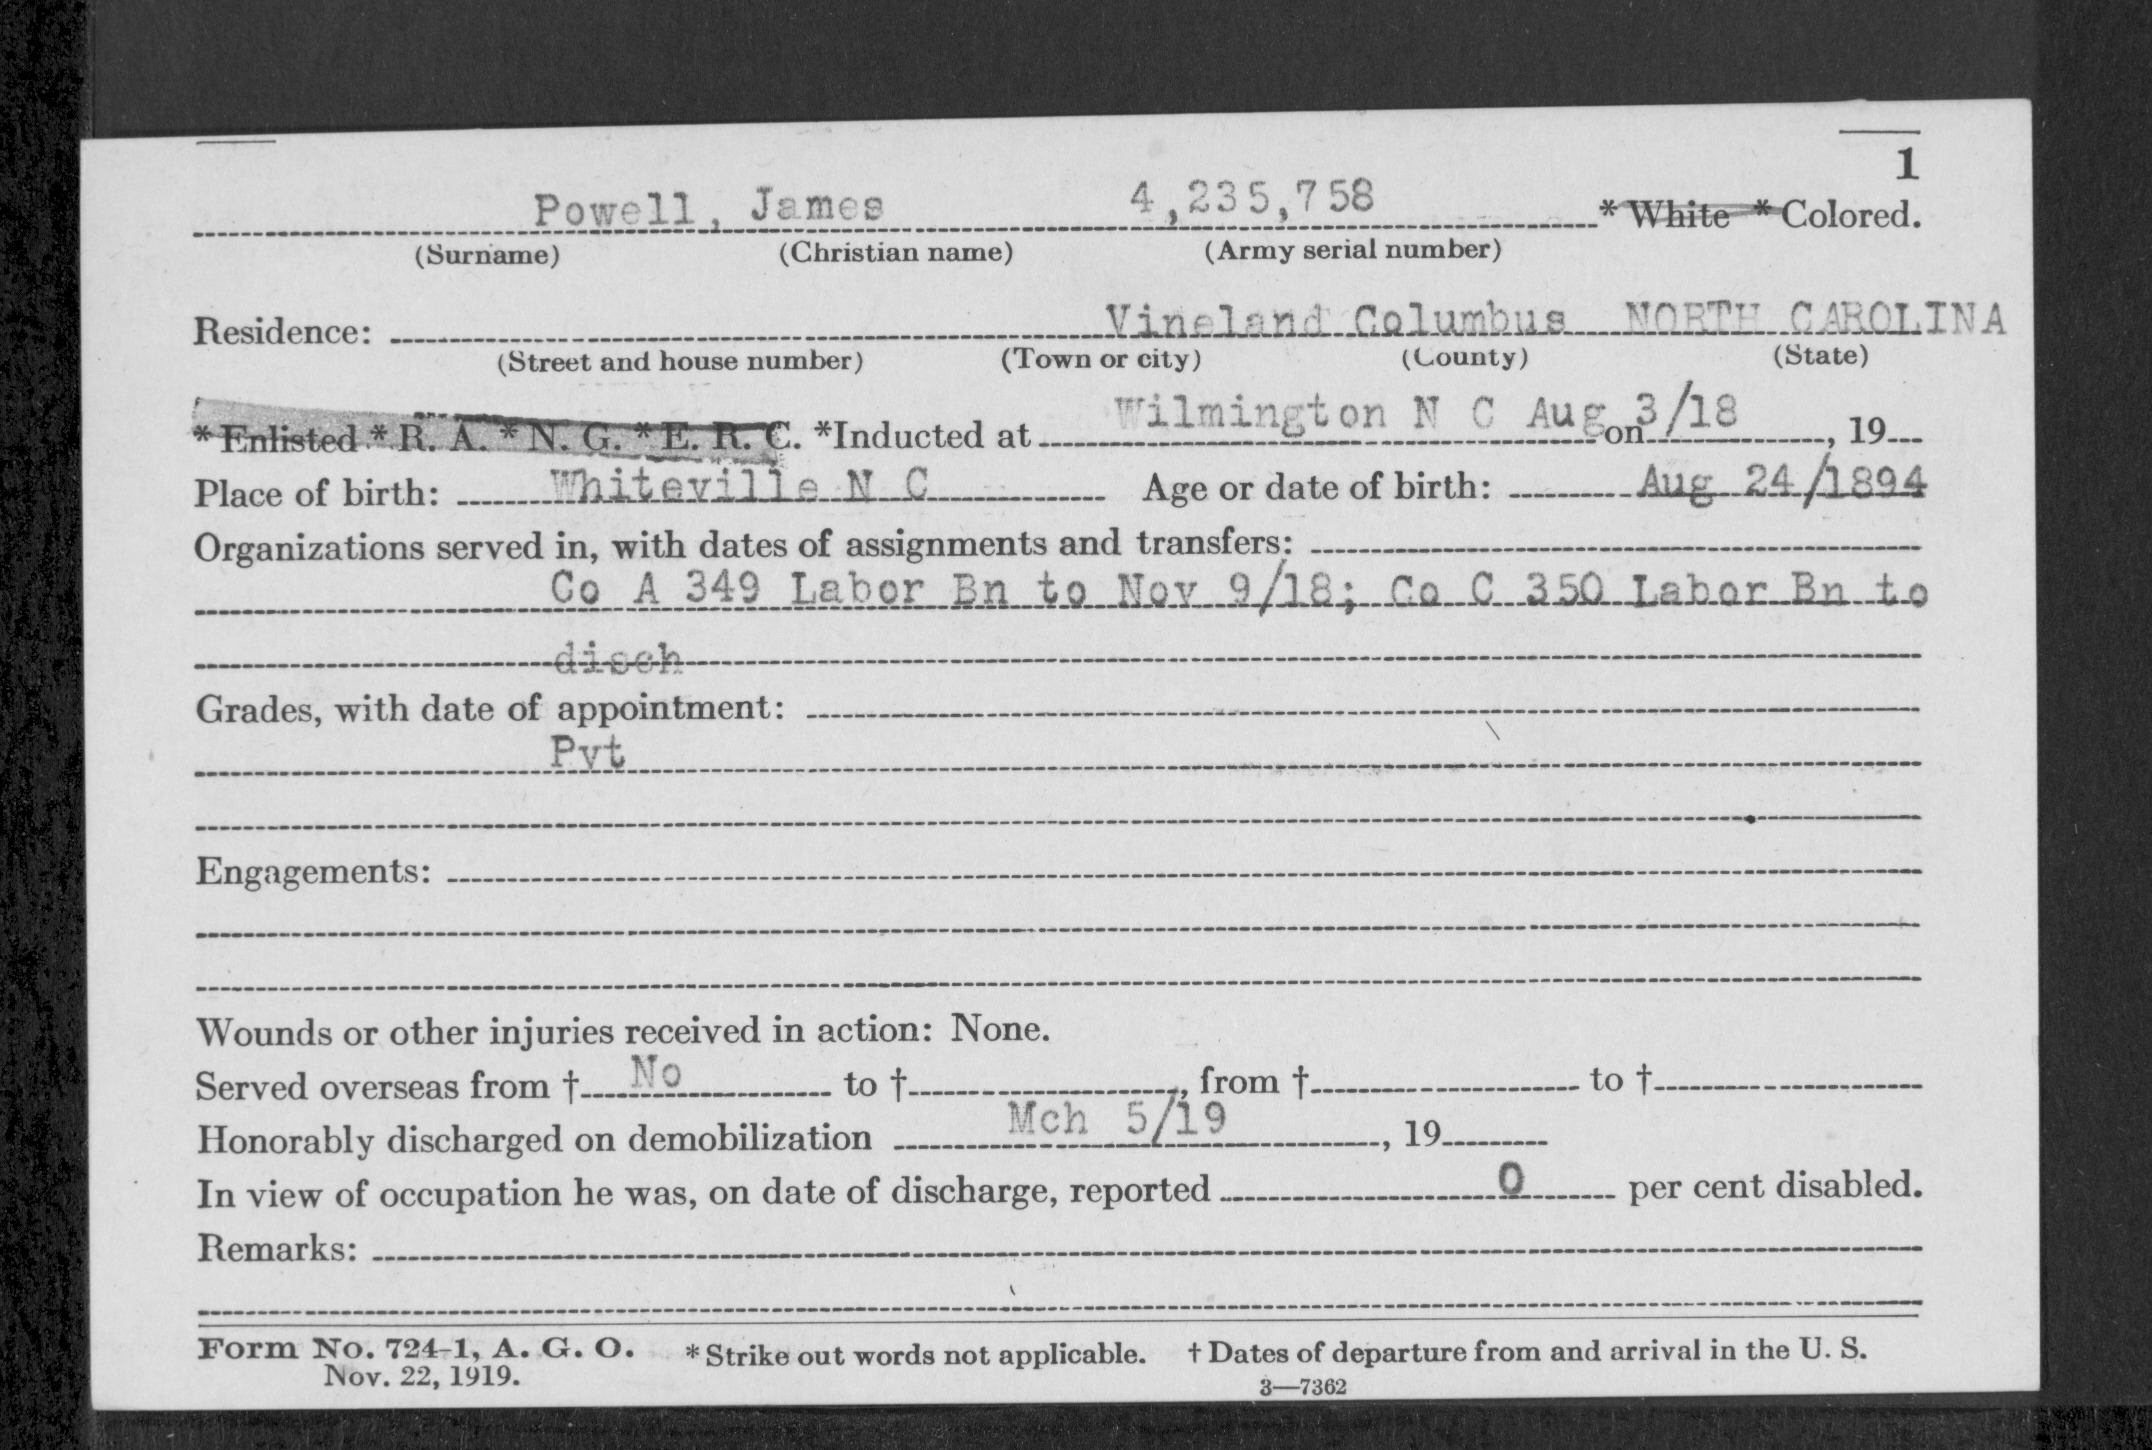 1
Powell, James 4,235,758 * White * Colored.
(Surname) (Christian name) (Army serial number)
Residence: Vineland Columbus NORTH CAROLINA
(Street and house number) (Town or city) (County) (State)
* Enlisted * R. A. * N. G. * E. R. C. *Inducted at Wilmington N C Aug on 3/18, 19
Place of birth: Whiteville N C Age or date of birth: Aug 24/1894
Organizations served in, with dates of assignments and transfers:
Co A 349 Labor Bn to Nov 9/18; Co C 350 Labor Bn to
disch
Grades, with date of appointment:
Pvt
Engagements:
Wounds or other injuries received in action: None.
Served overseas from † No to †, from † to †
Honorably discharged on demobilization Mch 5/19, 19
In view of occupation he was, on date of discharge, reported 0 per cent disabled.
Remarks:
Form No. 724-1, A. G. O. * Strike out words not applicable. † Dates of departure from and arrival in the U. S.
Nov. 22, 1919. 3—7362